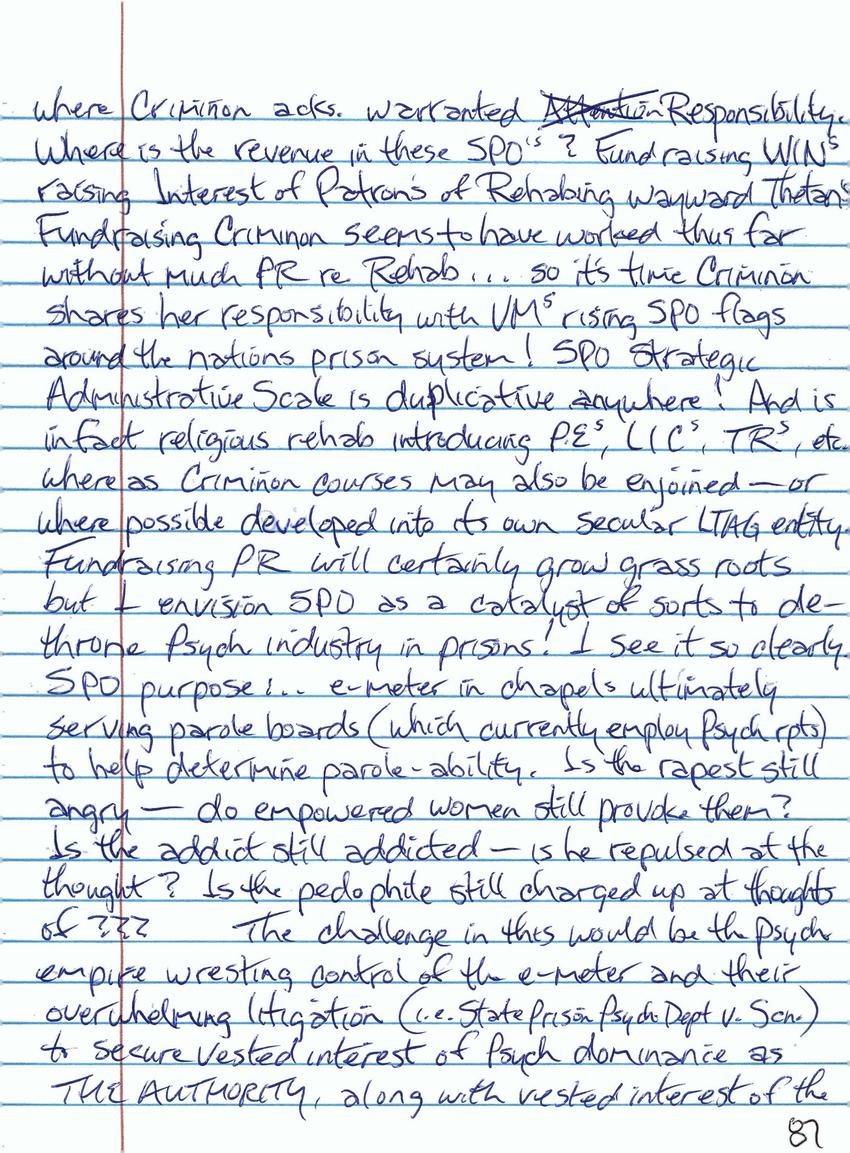 where Criminon acks. warranted Attention Responsibility.
Where is the revenue in these SPO's? Fundraising WINs
raising Interest of Patron's of Rehabing wayward Thetan's
Fundraising Criminon seems to have worked thus far
without much PR re Rehab... so it's time Criminon
shares her responsibility with VMs rising SPO flags
around the nations prison system! SPO Strategic
Administrative Scale is duplicative anywhere! And is
infact religious rehab introducing P.Es, LICs, TRs, etc.
where as Criminon courses may also be enjoined — or
where possible developed into its own secular LTAG entity.
Fundraising PR will certainly grow grass roots
but I envision SPO as a catalyst of sorts to de-
throne Psych industry in prisons! I see it so clearly.
SPO purpose!... e-meter in chapels ultimately
serving parole boards (which currently employ Psych rpts)
to help determine parole-ability. Is the rapest still
angry — do empowered women still provoke them?
Is the addict still addicted — is he repulsed at the
thought? Is the pedophile still charged up at thoughts
of ??? The challenge in this would be the Psych
empire wresting control of the e-meter and their
overwhelming litigation (i.e. State Prison Psych. Dept v. Scn.)
to secure vested interest of Psych dominance as
THE AUTHORITY, along with vested interest of the
87